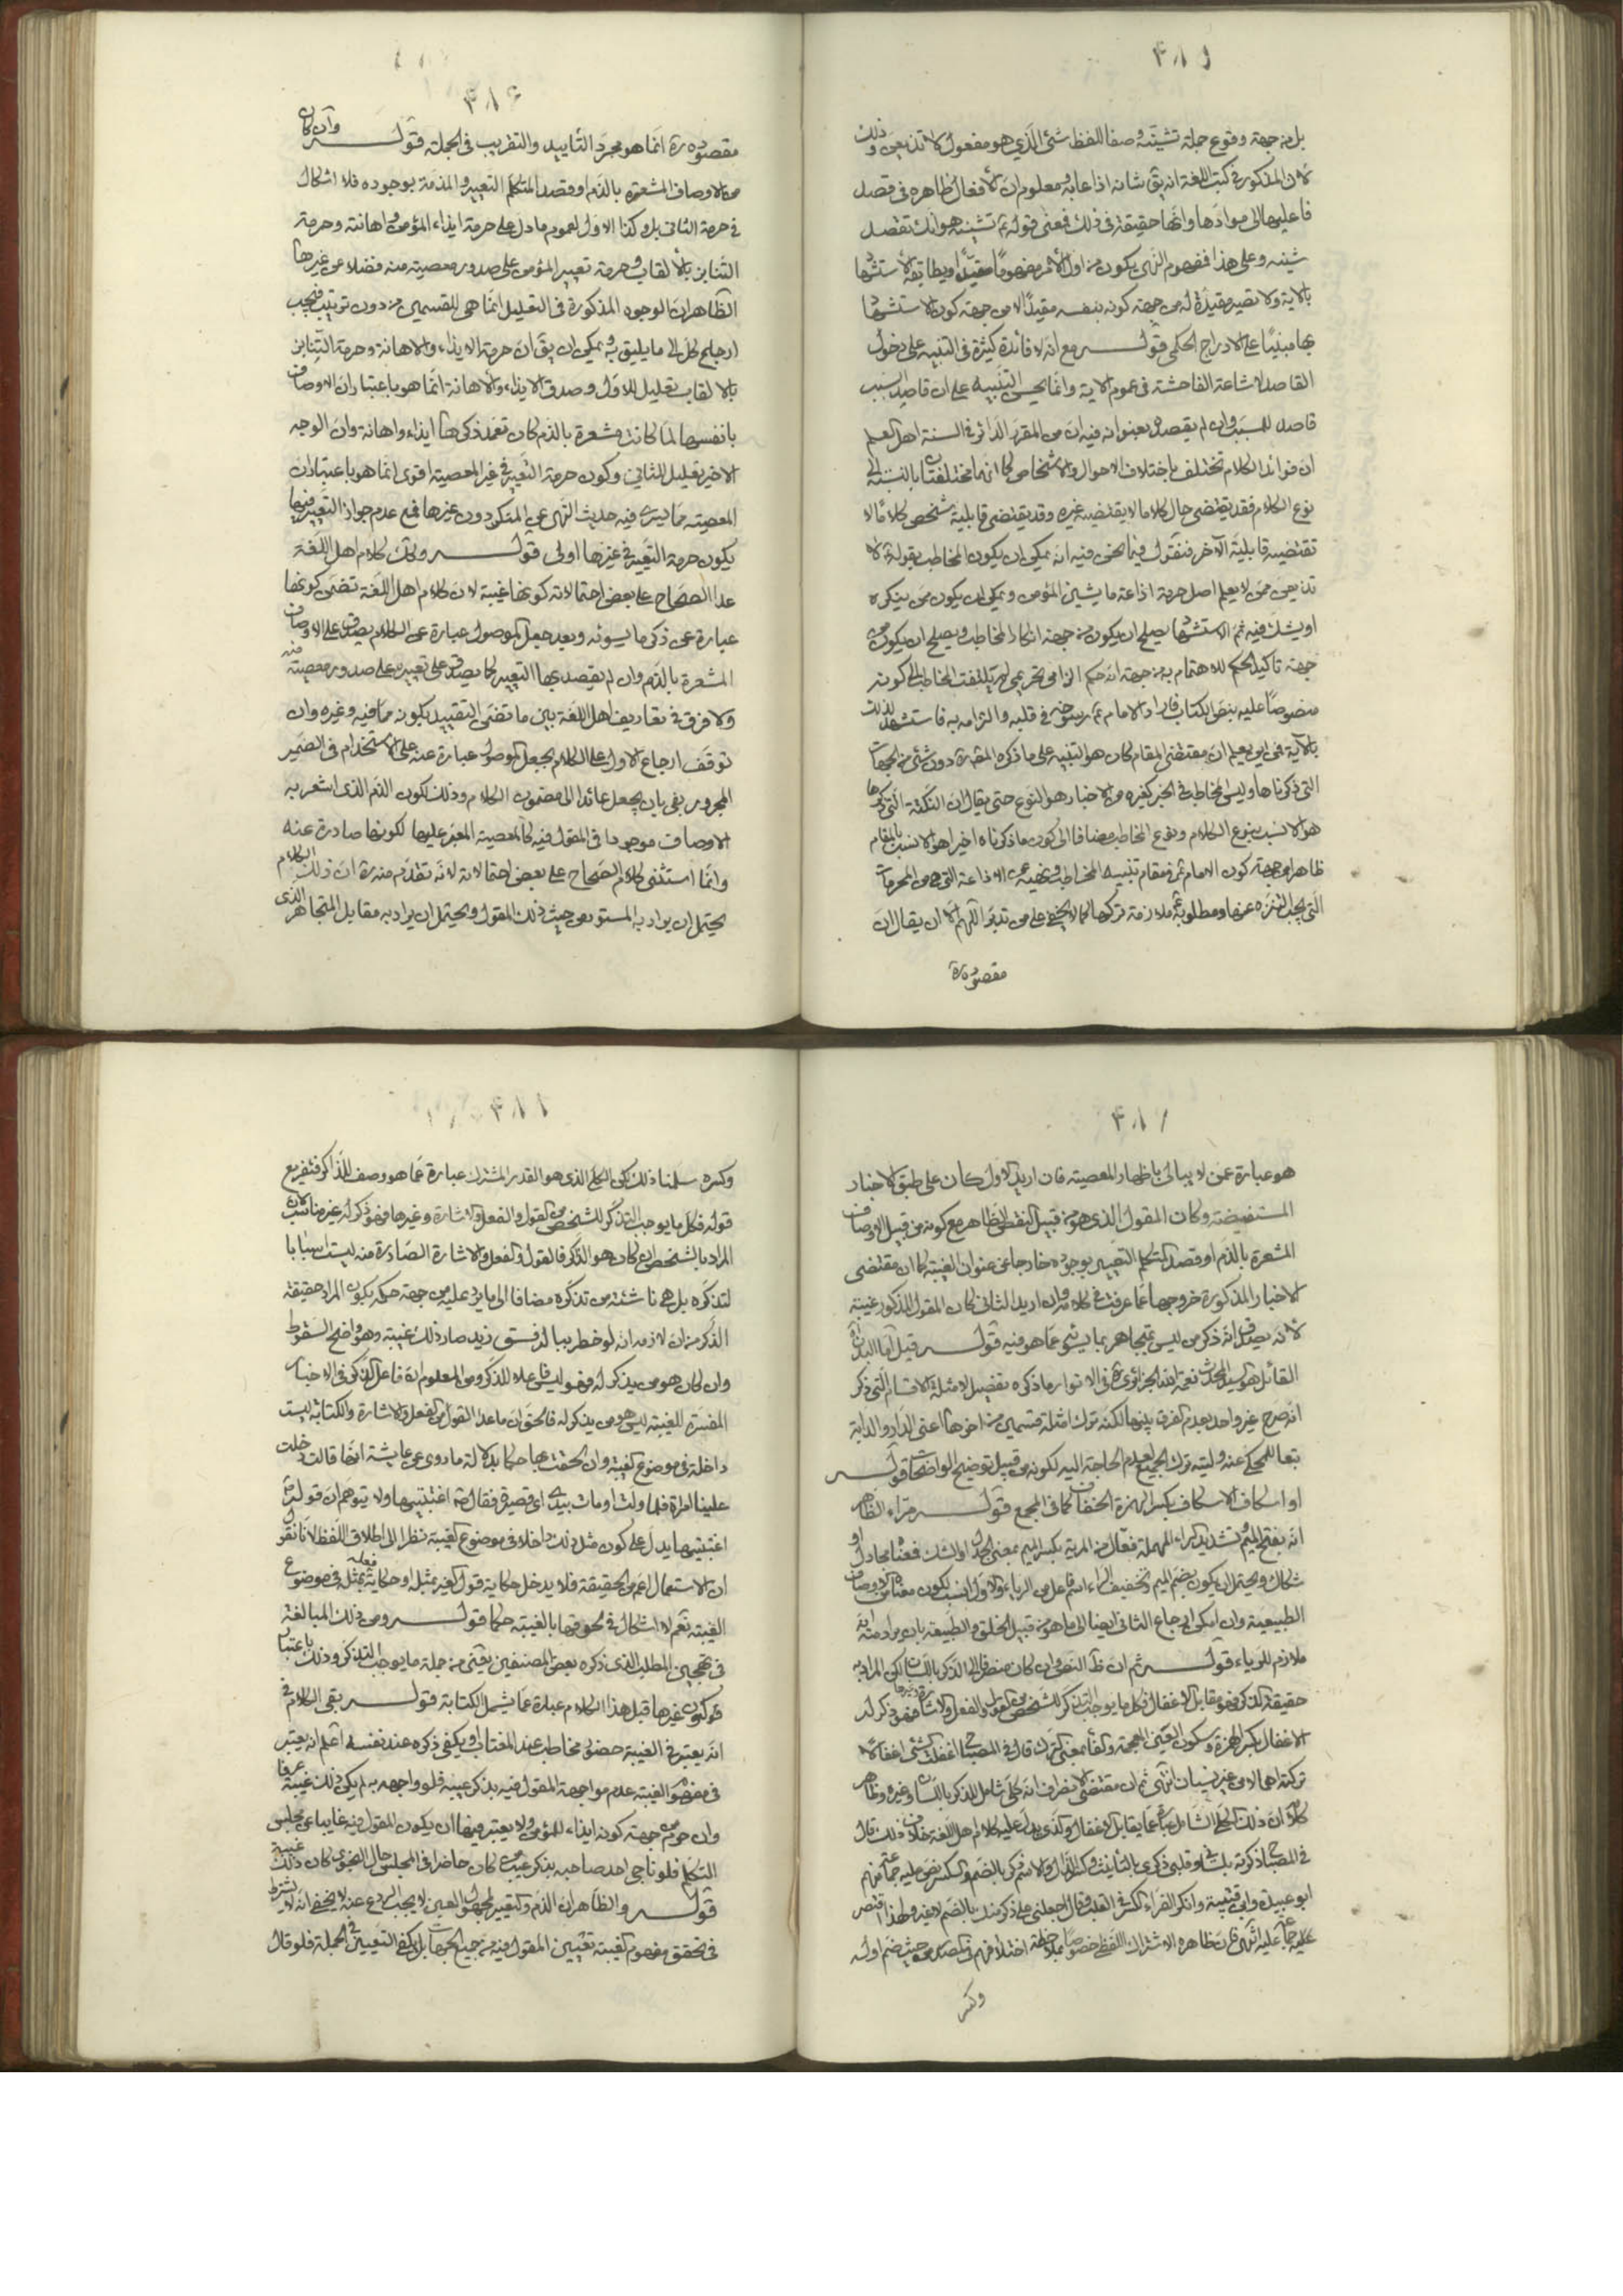 ٤٨٥
بل من جهة وقوع جملة تشينه وصفا للفظ شئ الذي هو مفعول لا تذيعن وذلك
لان المذكور في كتب اللغة انه يق شانه اذا عابه ومعلوم ان الأفعال ظاهرة في قصد
فاعليها الى موادها وانها حقيقة في ذلك فمعنى قوله ع تشينه هو انك تقصد
شينه وعلى هذا فمفهوم النهى يكون من اول الأمر مفهوما مقيدا ويطابقه الاستشهاد
بالاية ولا تصير مقيدة له من جهة كونه بنفسه مقيدا الا من جهة كون الاستشهاد
بها مبنيا على الادراج الحكمى قوله مع انه لا فائدة كثيرة في التنبيه على دخول
القاصد لاشاعة الفاحشة في عموم الاية وانما يحسن التنبيه على ان قاصد السبب
قاصد للمسبب وان لم يقصده بعنوانه فيه ان من المقرر الدائر في السنة اهل العلم
ان فوائد الكلام تختلف باختلاف الاحوال والاشخاص كما انها مختلفة بالنسبة الى
نوع الكلام فقد يقتضى حال كلاما لا يقتضيه غيره وقد يقتضى قابلية شخص كلاما لا
تقتضيه قابلية الآخر فنقول فيما نحن فيه انه يمكن ان يكون المخاطب بقوله ع لا
تذيعن ممن لا يعلم اصل حرمة اذاعة ما يشين المؤمن ويمكن ان يكون ممن ينكره
او يشك فيه ثم الاستشهاد يصلح ان يكون من جهة انكار المخاطب ويصلح ان يكون من
جهة تاكيد الحكم للاهتمام به من جهة انه حكم الزامى تحريمى لم يلتفت المخاطب الى كونه
منصوصا عليه بنص الكتاب فاراد الامام ع رسوخه في قلبه والتزامه به فاستشهد لذلك
بالآية فمن اين يعلم ان مقتضى المقام كان هو التنبيه على ما ذكره المقرر دون شئ من الجهات
التى ذكرناها وليس المخاطب في الخبر كغيره من الاخبار هو النوع حتى يقال ان النكتة التى ذكرها
هو الانسب بنوع الكلام ونوع المخاطب مضافا الى كون ما ذكرناه اخيرا هو الانسب بالمقام
ظاهرا من جهة كون الامام ع في مقام تنبيه المخاطب ونهيه عن الاذاعة التى هى من المحرمات
التى يجب التنزه عنها ومطلوبية ملازمة تركها كما لا يخفى على من تدبر اللهم الا ان يقال ان
مقصوده ره
٤٨٦
مقصوده ره انما هو مجرد التأييد والتقريب في الجملة قوله وان كان
من الاوصاف المشعرة بالذم او قصد المتكلم التعيير والمذمة بوجوده فلا اشكال
في حرمة الثانى بل وكذا الاول لعموم ما دل على حرمة ايذاء المؤمن واهانته وحرمة
التنابز بالألقاب وحرمة تعيير المؤمن على صدور معصية منه فضلا عن غيرها
الظاهر ان الوجوه المذكورة في التعليل انما هى للقسمين من دون ترتيب فيجب
ارجاع كل الى ما يليق به ويمكن ان يق ان حرمة الايذاء والاهانة وحرمة التنابز
بالالقاب تعليل للاول وصدق الايذاء والاهانة انما هو باعتبار ان الاوصاف
بانفسها لما كانت مشعرة بالذم كان تعمد ذكرها ايذاء واهانة وان الوجه
الاخير تعليل للثانى وكون حرمة التعيير في غير المعصية اقوى انما هو باعتبار ان
المعصية مما يسرى فيه حديث النهى عن المنكر دون غيرها فمع عدم جواز التعيير فيها
يكون حرمة التعيير في غيرها اولى قوله وكك كلام اهل اللغة
عدا الصحاح على بعض احتمالاته كونها غيبة لان كلام اهل اللغة تضمن كونها
عبارة عن ذكر ما يسوئه وبعد جعل الموصول عبارة عن الكلام يصدق على الاوصاف
المشعرة بالذم وان لم يقصد بها التعيير كما يصدق على تعييره على صدور معصية منه
ولا فرق في تعاريف اهل اللغة بين ما تضمن التقييد بكونه مما فيه وغيره وان
توقف ارجاع الاول على الكلام بجعل الموصول عبارة عنه على الاستخدام في الضمير
المجرور بفى بان يجعل عائدا الى مضمون الكلام وذلك لكون الذم الذى اشعر به
الاوصاف موجودا في المقول فيه كالمعصية المعير عليها لكونها صادرة عنه
وانما استثنى كلام الصحاح على بعض احتمالاته لانه تقدم منه ره ان ذلك الكلام
يحتمل ان يراد به المستور من حيث ذلك المقول ويحتمل ان يراد به مقابل المتجاهر الذى
٤٨٧
هو عبارة عمن لا يبالى باظهار المعصية فان اريد الاول كان على طبق الاخبار
المستفيضة وكان المقول الذى هو من قبيل النقص الظاهر مع كونه من قبيل الاوصاف
المشعرة بالذم او قصد المتكلم التعيير بوجوده خارجا عن عنوان الغيبة كما ان مقتضى
الاخبار المذكورة خروجها عما عرفت في كلامه وان اريد الثانى كان المقول المذكور غيبة
لانه يصدق انه ذكر من ليس بمتجاهر بما يسوئه مما هو فيه قوله قيل اما البدن اه
القائل هو السيد المحدث نعمة الله الجزائرى ره في الانوار وما ذكره تفصيل لامثلة الاقسام التى ذكر
انه صرح غير واحد بعدم الفرق بينها لكنه ترك امثلة قسمين من اخرها اعنى الدار والدابة
تبعا للمحكى عنه وليته ترك الجميع لعدم الحاجة اليه لكونه من قبيل توضيح الواضحات قوله
او اسكاف الاسكاف بكسر الهمزة الخفاف كما في المجمع قوله مراء الظاهر
انه بفتح الميم وتشديد الراء المهملة فعال من المرية بكسر الميم بمعنى الجدل او الشك فمعناه مجادل او
شكاك ويحتمل ان يكون بضم الميم وتخفيف الراء اسم فاعل من الرياء والاول انسب لكون معناه من الاوصاف
الطبيعية وان امكن ارجاع الثانى ايضا الى ما هو من قبيل الخلق والطبيعة بان يراد منه انه
ملازم للرياء قوله ثم ان ظ النص وان كان منصرفا الى الذكر باللسان لكن المراد به
حقيقة الذكر فهو مقابل الاغفال فكل ما يوجب التذكر للشخص من القول والفعل والاشارة وغيرها فهو ذكر له
الاغفال بكسر الهمزة وسكون الغين المعجمة والفاء بمعنى الترك قال في المصباح اغفلت الشئ اغفالا
تركته اهمالا من غير نسيان انتهى ثم ان مقتضى الانصراف انه كلى شامل للذكر باللسان وغيره وظاهر
كلامه ان ذلك الكلى الشامل عبارة عما يقابل الاغفال والذى يدل عليه كلام اهل اللغة خلاف ذلك قال
في المصباح ذكرته بلسانى وقلبى ذكرى بالتأنيث وكسر الذال والاسم ذكر بالضم والكسر نص عليه جماعة منهم
ابو عبيدة وابن قتيبة وانكر الفراء الكسر في القلب وقال اجعلنى على ذكر منك بالضم لا غير ولهذا اقتصر
جماعة عليه انتهى فان ظاهره الاشتراك اللفظى خصوصا بملاحظة اختلافهم في المصدر من حيث ضم اوله
وكسره
٤٨٨
وكسره سلمنا ذلك لكن الكلى الذى هو القدر المشترك عبارة عما هو وصف للذاكر فتفريع
قوله فكل ما يوجب التذكر للشخص من القول والفعل والاشارة وغيرها فهو ذكر له غير مناسب لان
المراد بالشخص ان كان هو الذاكر فالقول والفعل والاشارة الصادرة منه ليست اسبابا
لتذكره بل هى ناشئة من تذكره مضافا الى ما يرد عليه من جهة حكمه بكون المراد حقيقة
الذكر من ان لازمه انه لو خطر ببالك فسق زيد صار ذلك غيبة وهو واضح السقوط
وان كان هو من يذكر له فهو ليس فاعلا للذكر ومن المعلوم ان فاعل الذكر في الاخبار
المفسرة للغيبة ليس هو من يذكر له فالحق ان ما عدا القول من الفعل والاشارة والكتابة ليست
داخلة في موضوع الغيبة وان الحقت بها حكما بدلالة ما روى عن عايشة انها قالت دخلت
علينا امراة فلما ولت اومات بيدى اى قصيرة فقال ص اغتبتيها ولا يتوهم ان قوله ص
اغتبتيها يدل على كون مثل ذلك داخلا في موضوع الغيبة نظرا الى اطلاق اللفظ لانا نقول
ان الاستعمال اعم من الحقيقة فلا يدخل حكاية قول الغير بمثله او حكاية فعله بمثله في موضوع
الغيبة نعم لا اشكال في لحوقها بالغيبة حكما قوله ومن ذلك المبالغة
في تهجين المطلب الذى ذكره بعض المصنفين يعنى من جملة ما يوجب التذكر وذلك باعتبار
كون غيرها قبل هذا الكلام عبارة عما يشمل الكتابة قوله بقى الكلام في
انه يعتبر في الغيبة حضور مخاطب عند المغتاب او يكفى ذكره عند نفسه اعلم انه يعتبر
في مفهوم الغيبة عدم مواجهة المقول فيه بذكر عيبه فلو واجهه به لم يكن ذلك غيبة عرفا
وان حرم من جهة كونه ايذاء للمؤمن ولا يعتبر فيها ان يكون المقول فيه غايبا عن مجلس
التكلم فلو ناجى احد صاحبه بذكر عيب من كان حاضرا في المجلس حال النجوى كان ذلك غيبة
قوله والظاهر ان الذم والتعيير لمجهول العين لا يجب الردع عنه لا يخفى انه لا يشترط
في تحقق مفهوم الغيبة تعيين المقول فيه من جميع الجهات بل يكفى التعيين في الجملة فلو قال